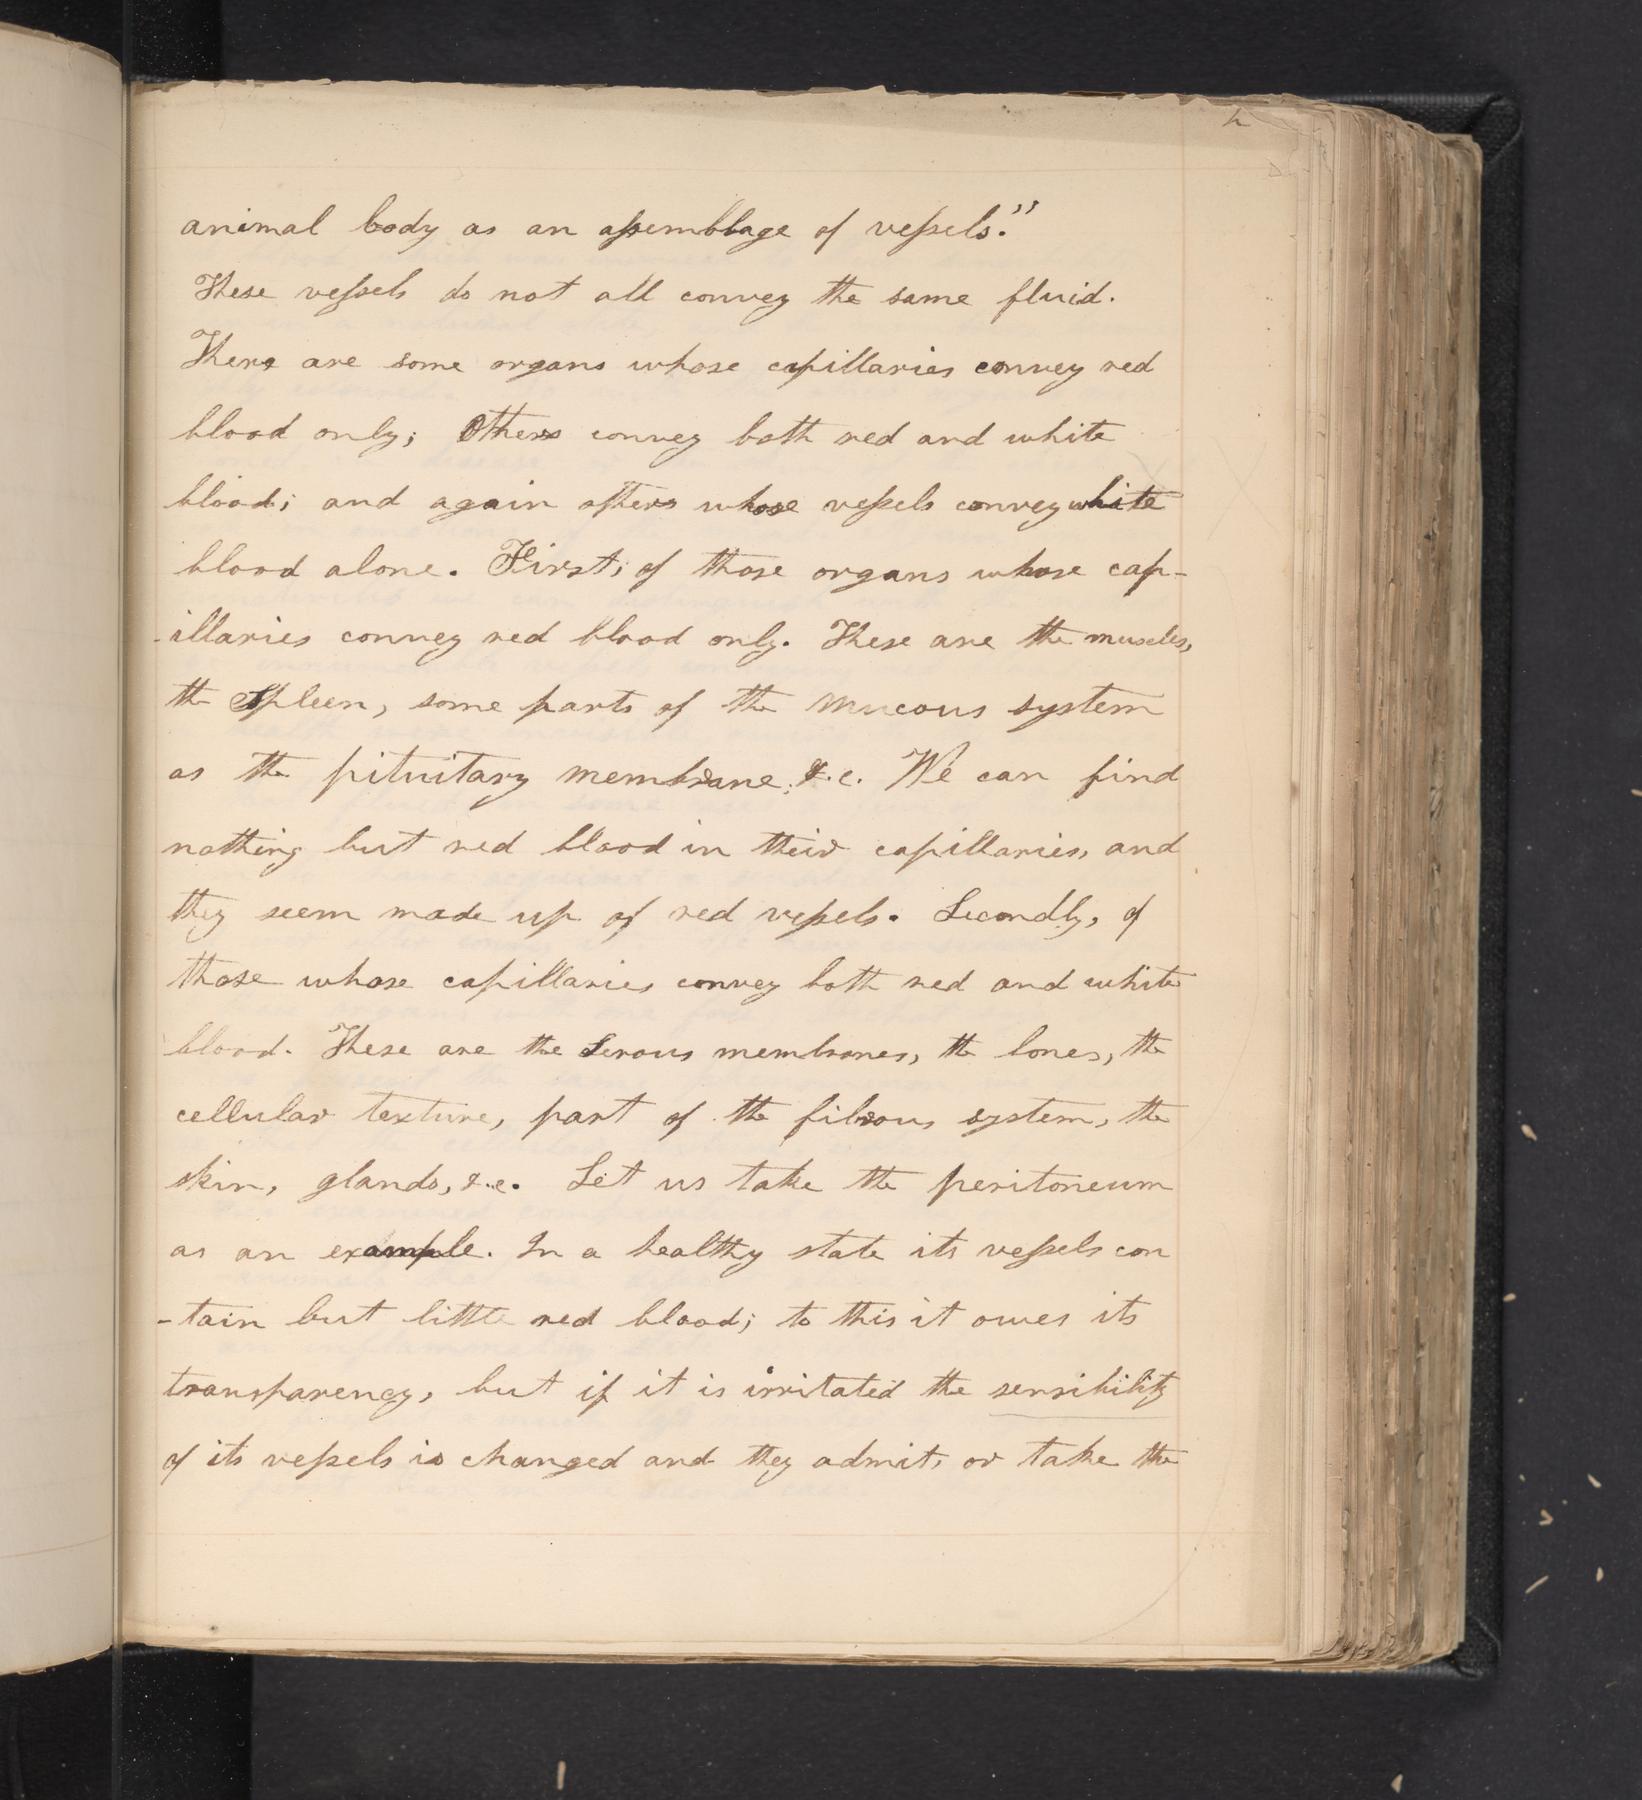 animal body as an assemblage of vessels."
These vessels do not all convey the same fluid.
There are some organs whose capillaries convey red
blood only; Others convey both red and white
blood; and again others whose vessels convey white
blood alone. First; of those organs whose cap-
-illaries convey red blood only. These are the muscles,
the Spleen, some parts of the mucous system
as the pituitary membrane, &.c. We can find
nothing but red blood in their capillaries, and
they seem made up of red vessels. Secondly, of
those whose capillaries convey both red and white
blood. These are the Serous membranes, the bones, the
cellular texture, part of the fibrous system, the
skin, glands, &.c. Let us take the peritoneum
as an example. In a healthy state its vessels con
-tain but little red blood; to this it owes its
transparency, but if it is irritated the sensibility
of its vessels is changed and they admit, or take the